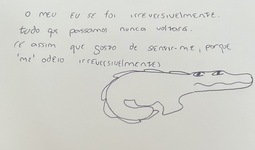 O MEU EU SE FOI IRREVERSIVELMENTE.
tudo qe passamos nunca voltara.
Fe assim que gosto de sentir-me, porque
'me' odeio IRREVERSIVELMENTE,